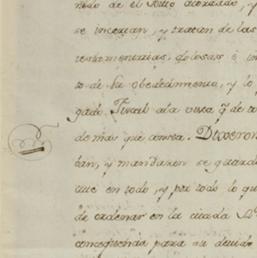 de el Auto acordado, y
se incertan, y tratan de las
testamentarias,
to de su obedecimiento, y lo
Fiscal ala vista q.e de to
demas que consta. Dixeron
ban, y mandaron se guarde
que en todo, y por todo lo que
de ordenar en la citada
consequencia para su devido